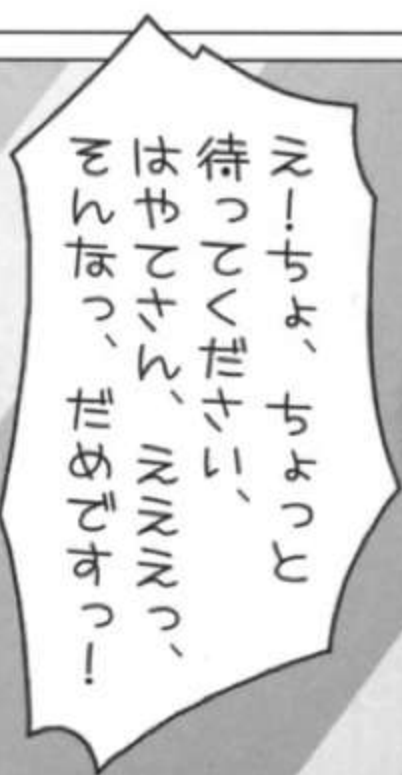 え！ちょ、ちょっと
待ってください、
はやてさん、えええっ、
そんなっ、だめですっ！